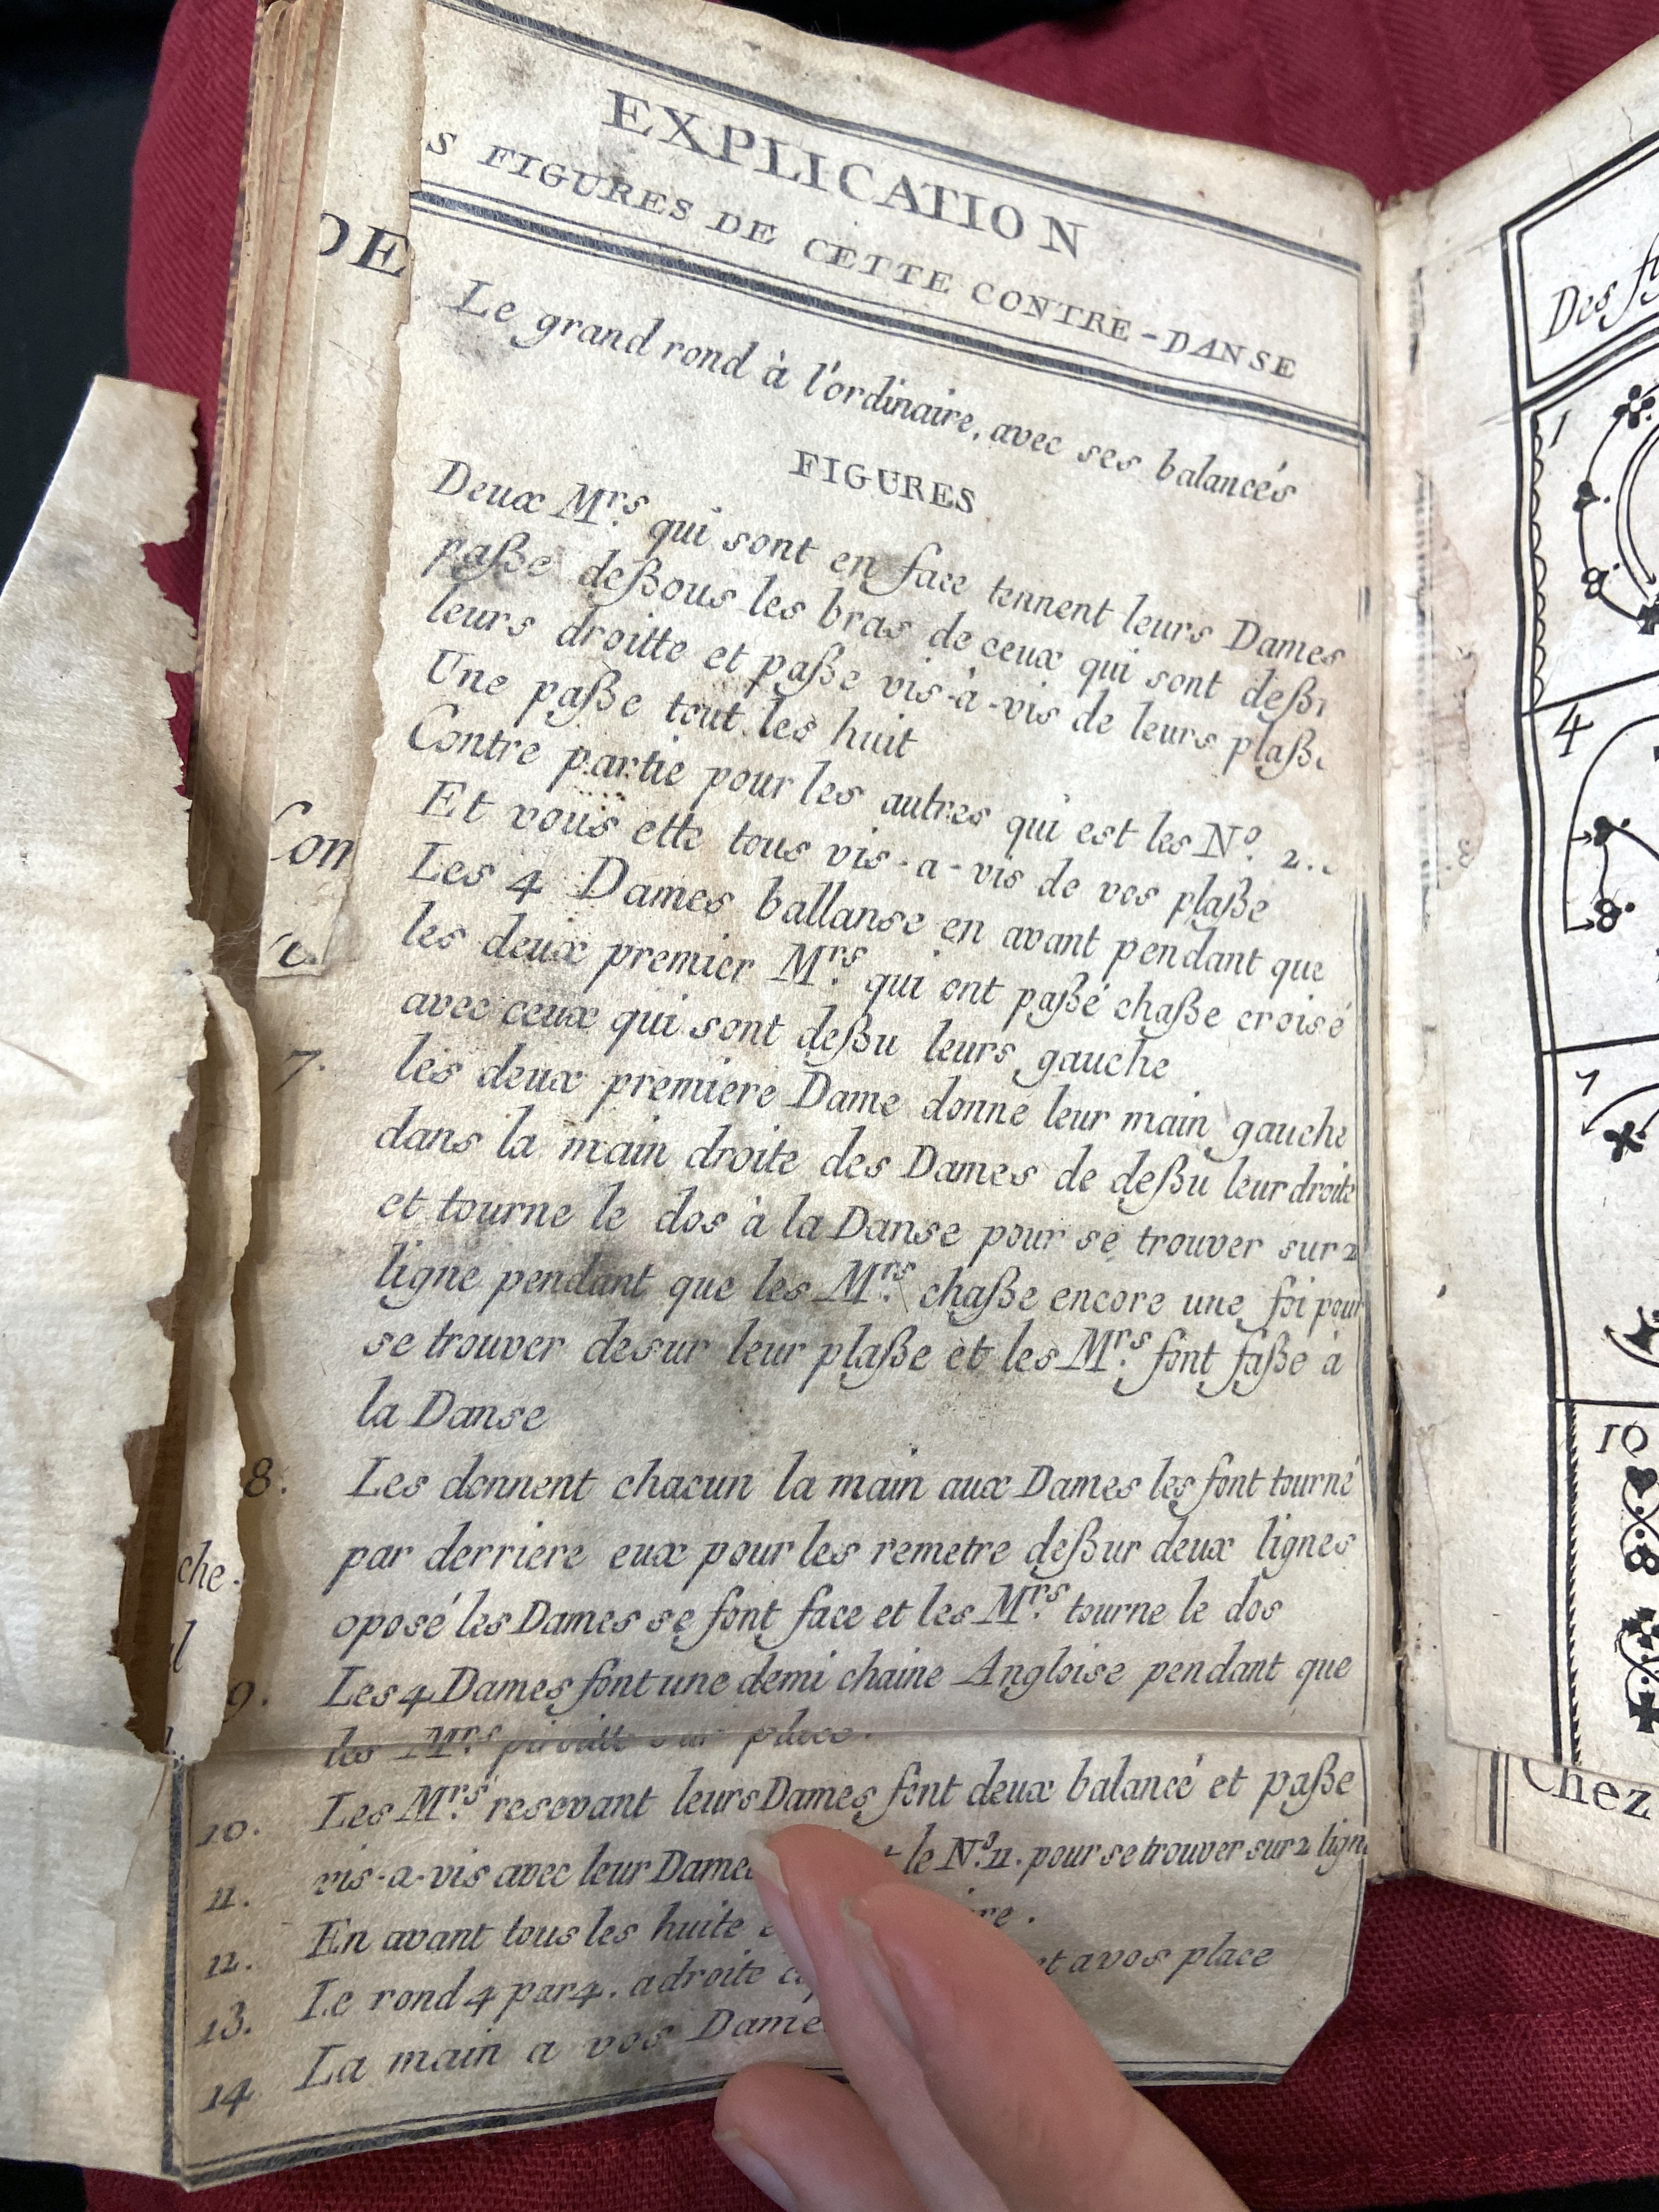 EXPLICATION
S FIGURES DE CETTE CONTRE-DANSE
DE
Le grand rond à l'ordinaire, avec ses balancés
FIGURES
Deux Mrs. qui sont en face tennent leurs Dames
paße deßous les bras de ceux qui sont
leurs droitte et paße vis-à-vis de leurs
Une paße tout les huit
Contre partie pour les autres qui est les No. 2.
Et vous ette tous vis-a-vis de vos plaße
Les 4 Dames ballanse en avant pendant que
les deux premier Mrs. qui ont paßé chaße croisé
avec ceux qui sont deßu leurs gauche
7. les deux premiere Dame donne leur main gauche
dans la main droite des Dames de deßu leur droite
et tourne le dos à la Danse pour se trouver sur 2
ligne pendant que les Mrs. chaße encore une foi pour
se trouver desur leur plaße et les Mrs. font faße à
la Danse
8. Les donnent chacun la main aux Dames les font tourné
par derriere eux pour les remetre deßur deux lignes
oposé les Dames se font face et les Mrs. tourne le dos
9. Les 4 Dames font une demi chaine Angloise pendant que
les Mrs. place.
10. Les Mrs. resevant leurs Dames font deux balancé et paße
11. vis-a-vis avec leur Dames le No. 11. pour se trouver sur 2 lign
12. En avant tous les huite
13. Le rond 4 par 4. a droite et a vos place
14 La main a vos Dame
Con
che.
Des
1
4
7
10
8
8
8
Chez